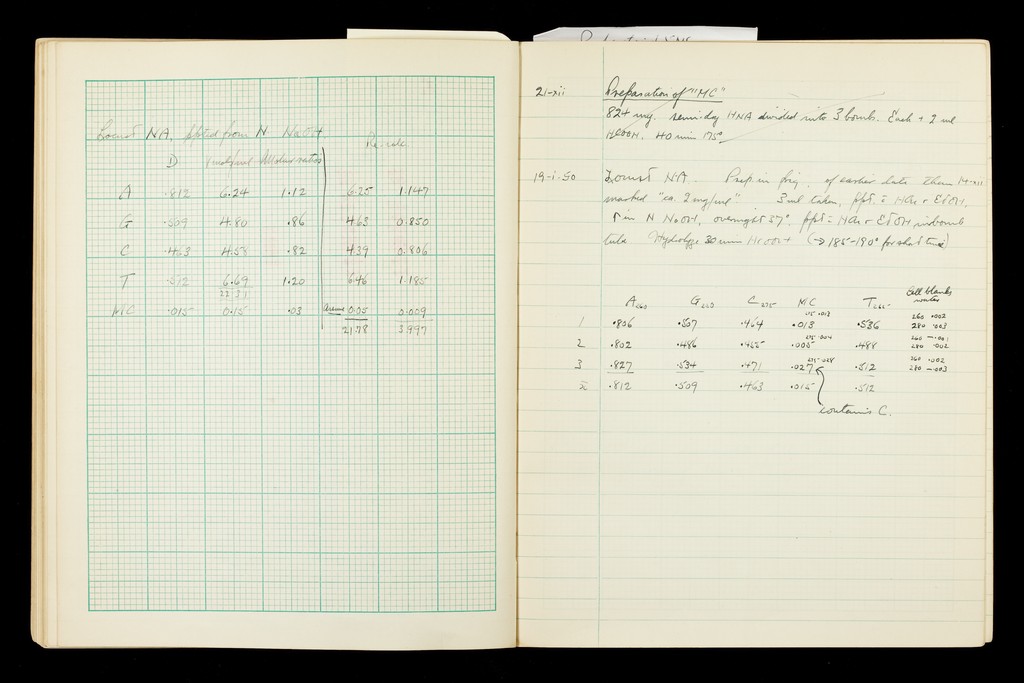 Locust NA, pptd from N NaOH
Re-calc.
D Molar ratios
A .812 6.24 1.12 6.25 1.147
G .509 4.80 .86 4.63 0.850
C .463 4.58 .82 4.39 0.806
T .512 6.69 1.20 6.46 1.185
22 31
MC .015 0.15 .03 0.05 0.009
21.78 3.997
21-xii Preparation of "MC"
82+ mg. HNA divided into 3 bombs. Each + 2 ml
HCOOH. 40 min 175°
19-i-50 Locust NA. Prep. in frig. of earlier date than
marked "ca. 2 mg/ml" 3 ml taken, ppt. = HAc + EtOH,
in N NaOH, overnight 37°. ppt = HAc + EtOH in bomb
tube Hydrolyse 30 min HCOOH (→ 185-190° for short time)
Cell blanks
water
A260 G260 C275 MC T265
1 .806 .507 .464 .013 .536 260 .002
280 .003
2 .802 .486 .455 .005 .488 260 -.001
280 .002
3 .827 .534 .471 .027 .512 260 .002
280 -.003
x̄ .812 .509 .463 .015 .512
contains C.